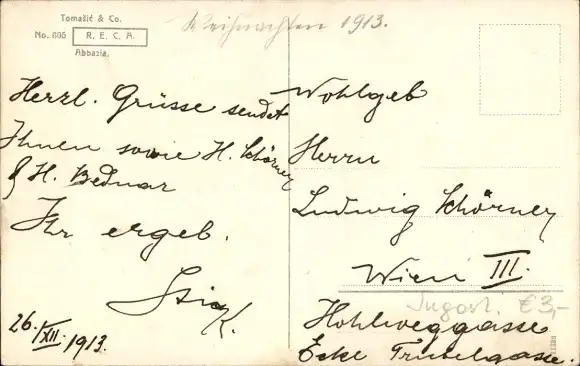 Tomašić & Co.
No. 695 R. E. C. A.
Abbazia.
Weihnachten 1913.
Herzl. Grüsse sendet
Ihnen sowie H. Schörney
& H. Bednar
Ihr ergeb.
26. XII. 1913.
Wohlgeb
Herrn
Ludwig Schörney
Wien III.
Jugosl. € 3,-
Hohlweggasse
Ecke